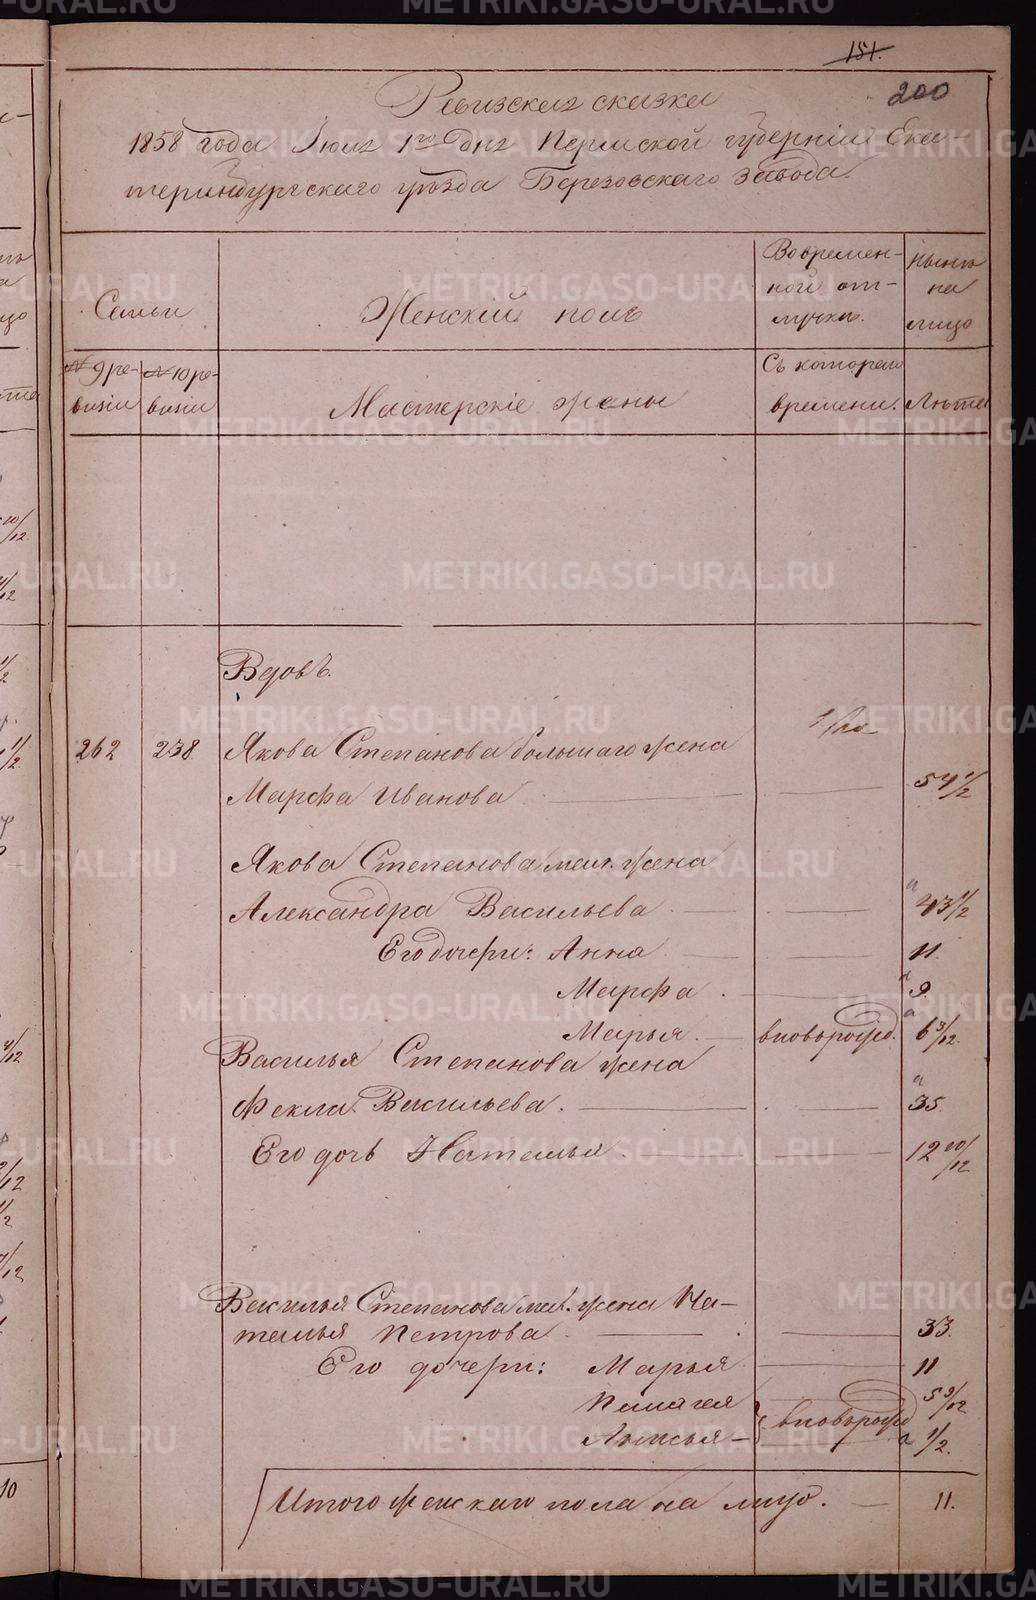 151.
200
Ревизская сказка
1858 года Июля 1го дня Пермской губернии Ека-
теринбургского уезда Березовского завода.
Семьи
Женский полъ
Вовремен-
ной от-
лучки.
ныне
на
лицо
№ 9 ре-
визии
№ 10 ре-
визии
Мастерскiе жены
Съ котораго
времени.
Лета
Вдовъ.
262 238 Якова Степанова большаго жена
Марфа Иванова 54 1/2
Якова Степанова мал. жена
Александра Васильева 43 1/2
Его дочери: Анна 11.
Марфа 9.
Марья. вновьрожд. 6 3/12.
Василья Степанова жена
Фекла Васильева. 35.
Его дочь Наталья 12 10/12
Василья Степанова мал. жена На-
талья Петрова 33.
Его дочери: Марья 11
Пилагея 5 9/12
вновьрожд
1/2.
Итого женскаго пола на лицо. 11.
METRIKI.GASO-URAL.RU